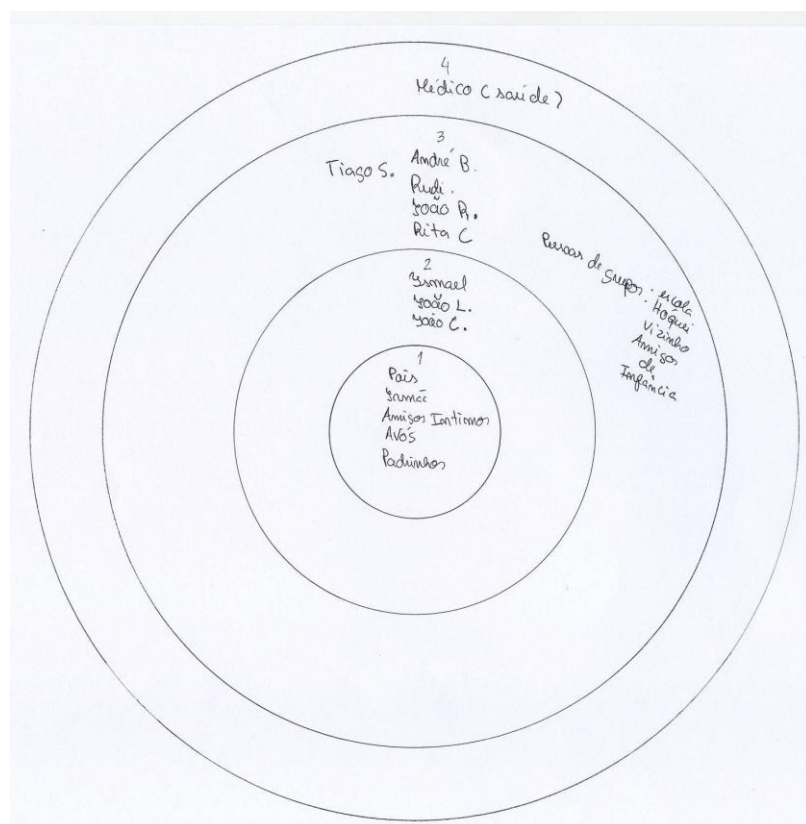 4
Médico (saúde)
3
Tiago S.
André B.
Rudi.
João R.
Rita C
Pessoas de grupos · escola
· Hóquei
Vizinho
Amigos
de
Infância
2
Ismael
João L.
João C.
1
Pais
Irmã
Amigos Intimos
Avós
Padrinhos